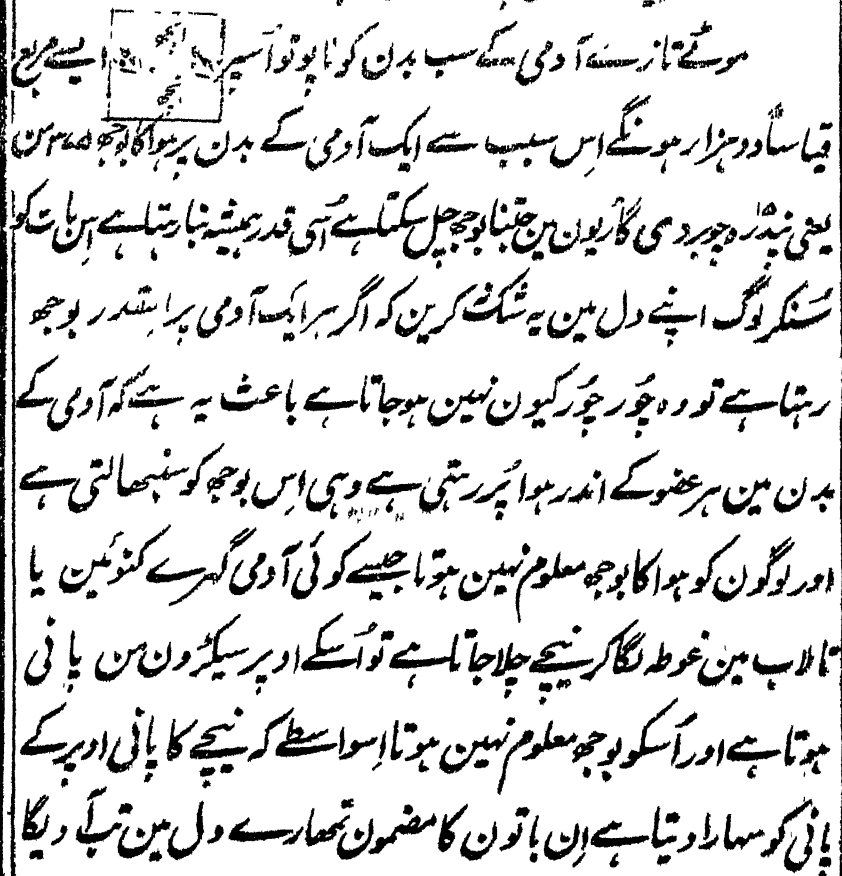 موٹے تازے آدمی کے سب بدن کو ناپو تو اُسپر انچھ انچھ ایسے مربع
قیاساً دو ہزار ہونگے اِس سبب سے ایک آدمی کے بدن پر ہوا کا بوجھ ۳۷۵ من
یعنی پندرہ ۱۵ چوبردی گاڑیون مین جتنا بوجھ چل سکتا ہے اُسی قدر ہمیشہ بنا رہتا ہے اِس بات کو
سُنکر لوگ اپنے دل مین یہ شک نہ کرین کہ اگر ہر ایک آدمی پر اِسقدر بوجھ
رہتا ہے تو وہ چُور چُور کیون نہین ہو جاتا ہے باعث یہ ہے کہ آدمی کے
بدن مین ہر عضو کے اندر ہوا پُر رہتی ہے وہی اِس بوجھ کو سنبھالتی ہے
اور لوگون کو ہوا کا بوجھ معلوم نہین ہوتا جیسے کوئی آدمی گہرے کنوئین یا
تالاب مین غوطہ لگا کر نیچے چلا جاتا ہے تو اُسکے اوپر سیکڑون من پانی
ہوتا ہے اور اُسکو بوجھ معلوم نہین ہوتا اِسواسطے کہ نیچے کا پانی اوپر کے
پانی کو سہارا دیتا ہے اِن باتون کا مضمون تمھارے دل مین تب آویگا